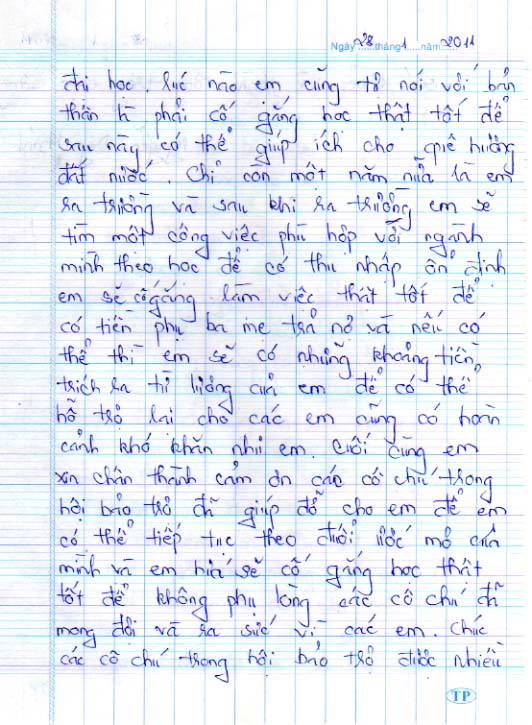 Ngày 28 tháng 1 năm 2011
đi học. lúc nào em cũng tự nói với bản
thân là phải cố gắng học thật tốt để
sau này có thể giúp ích cho quê hương
đất nước. Chỉ còn một năm nữa là em
ra trường và sau khi ra trường em sẽ
tìm một công việc phù hợp với ngành
mình theo học để có thu nhập ổn định
em sẽ cố gắng làm việc thật tốt để
có tiền phụ ba mẹ trả nợ và nếu có
thể thì em sẽ có những khoảng tiền
trích ra từ lương của em để có thể
hỗ trợ lại cho các em cũng có hoàn
cảnh khó khăn như em. Cuối cùng em
xin chân thành cảm ơn các cô chú trong
hội bảo trợ đã giúp đỡ cho em để em
có thể tiếp tục theo đuổi ước mơ của
mình và em hứa sẽ cố gắng học thật
tốt để không phụ lòng các cô chú đã
mong đợi và ra sức vì các em. Chúc
các cô chú trong hội bảo trợ được nhiều
TP